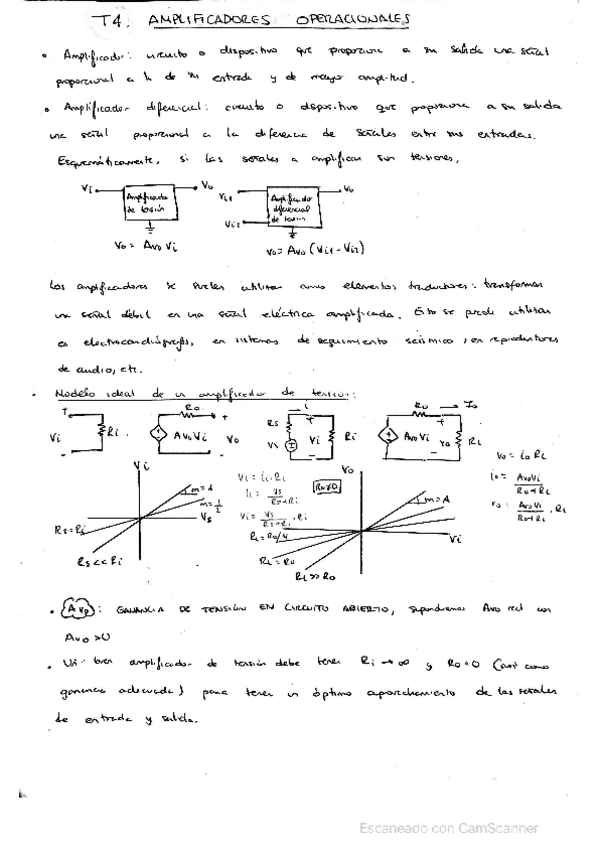 T4. AMPLIFICADORES OPERACIONALES
• Amplificador: circuito o dispositivo que proporciona a su salida una señal
proporcional a la de su entrada y de mayor amplitud.
• Amplificador diferencial: circuito o dispositivo que proporciona a su salida
una señal proporcional a la diferencia de señales entre sus entradas.
Esquemáticamente, si las señales a amplificar son tensiones,
Vi Amplificador de tensión Vo
Vi1 Vi2 Amplificador diferencial de tensión Vo
Vo = Avo Vi
Vo = Avo (Vi1 - Vi2)
Los amplificadores se suelen utilizar como elementos traductores: transforman
una señal débil en una señal eléctrica amplificada. Esto se puede utilizar
en electrocardiógrafos, en sistemas de seguimiento sísmico, en reproductores
de audio, etc.
• Modelo ideal de un amplificador de tensión:
+ Vi - Ri
Ro Avo Vi + Vo -
Rs Vs i + Vi - Ri
Ro Io Avo Vi + Vo - RL
Vo = io RL
io = AvoVi / Ro+RL
Vo = AvoVi / Ro+RL . RL
Vi
m=1
m=1/2
Vs
Rs=Ri
Rs<<Ri
Vi = ii . Ri
ii = Vs / Rs+Ri
Vi = Vs / Rs+Ri . Ri
Ro≠0
Vo
m=A
Vi
RL=Ro/4
RL=Ro
RL>>Ro
• Avo: GANANCIA DE TENSIÓN EN CIRCUITO ABIERTO, supondremos Avo real con
Avo >0
• Un buen amplificador de tensión debe tener Ri → ∞ y Ro=0 (así como
ganancia adecuada) para tener un óptimo aprovechamiento de las señales
de entrada y salida.
Escaneado con CamScanner